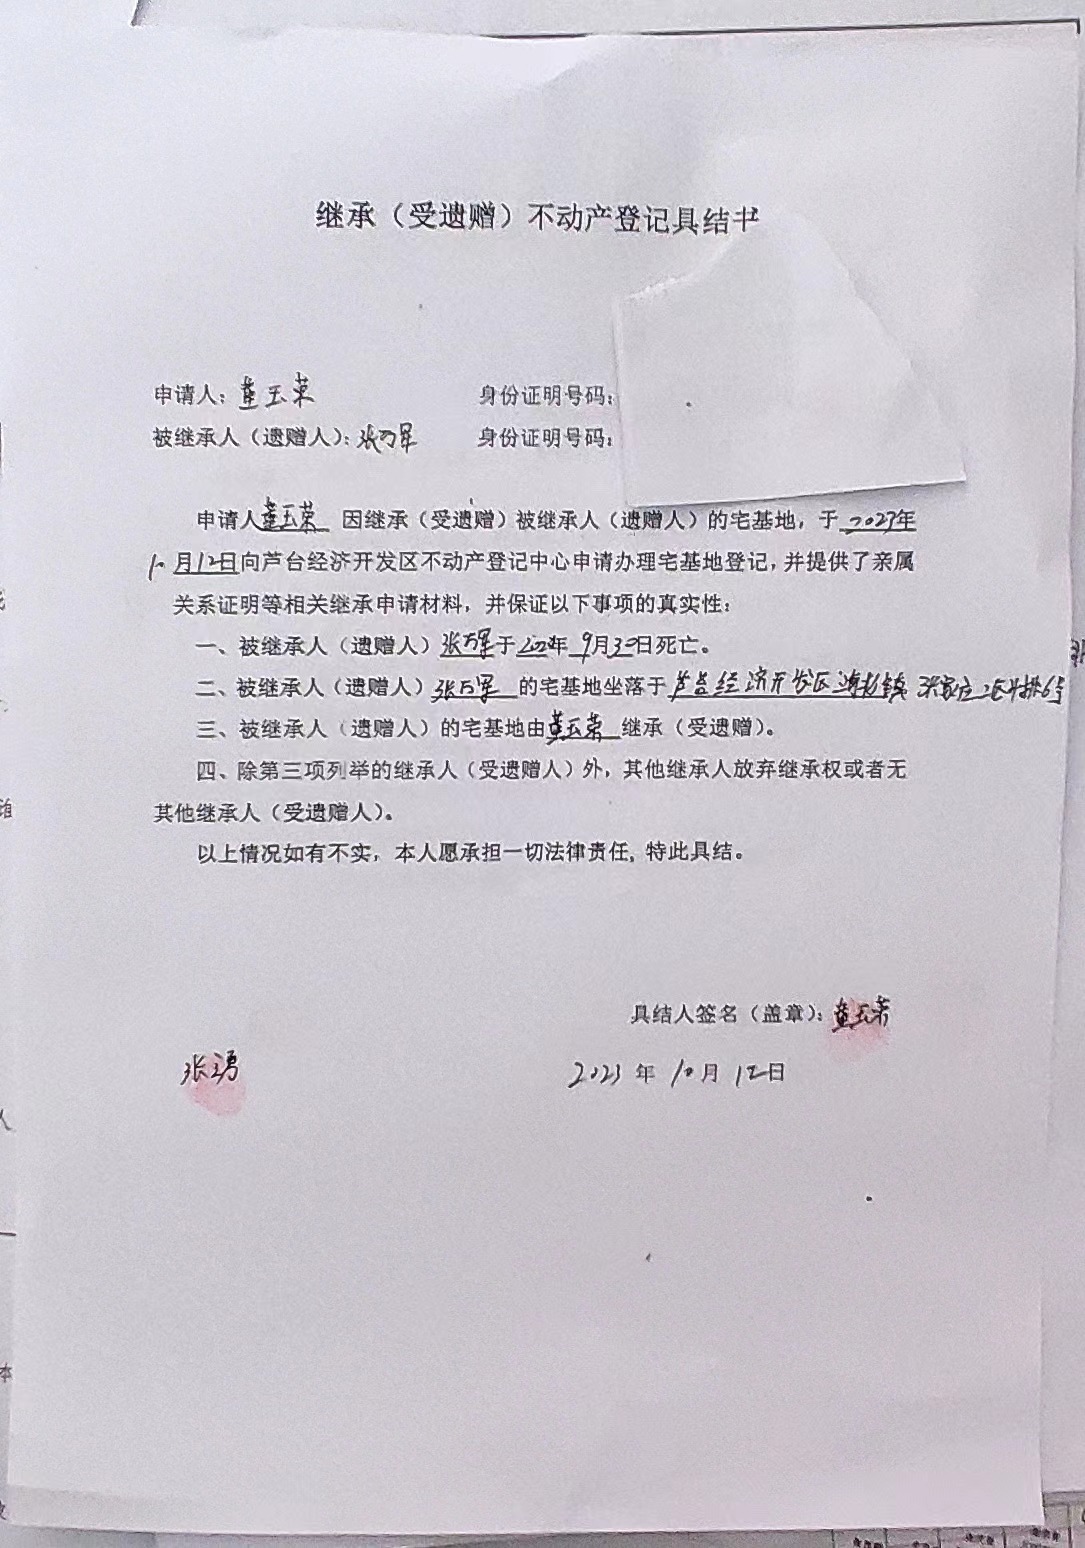 继承（受遗赠）不动产登记具结书
申请人：董玉荣 身份证明号码：
被继承人（遗赠人）：张万军 身份证明号码：
申请人董玉荣 因继承（受遗赠）被继承人（遗赠人）的宅基地，于2023年
10月12日向芦台经济开发区不动产登记中心申请办理宅基地登记，并提供了亲属
关系证明等相关继承申请材料，并保证以下事项的真实性：
一、被继承人（遗赠人）张万军于 年 9月30日死亡。
二、被继承人（遗赠人）张万军 的宅基地坐落于芦台经济开发区海北镇 张家庄
三、被继承人（遗赠人）的宅基地由董玉荣 继承（受遗赠）。
四、除第三项列举的继承人（受遗赠人）外，其他继承人放弃继承权或者无
其他继承人（受遗赠人）。
以上情况如有不实，本人愿承担一切法律责任, 特此具结。
具结人签名（盖章）：董玉荣
张勇
2023 年 10 月 12日